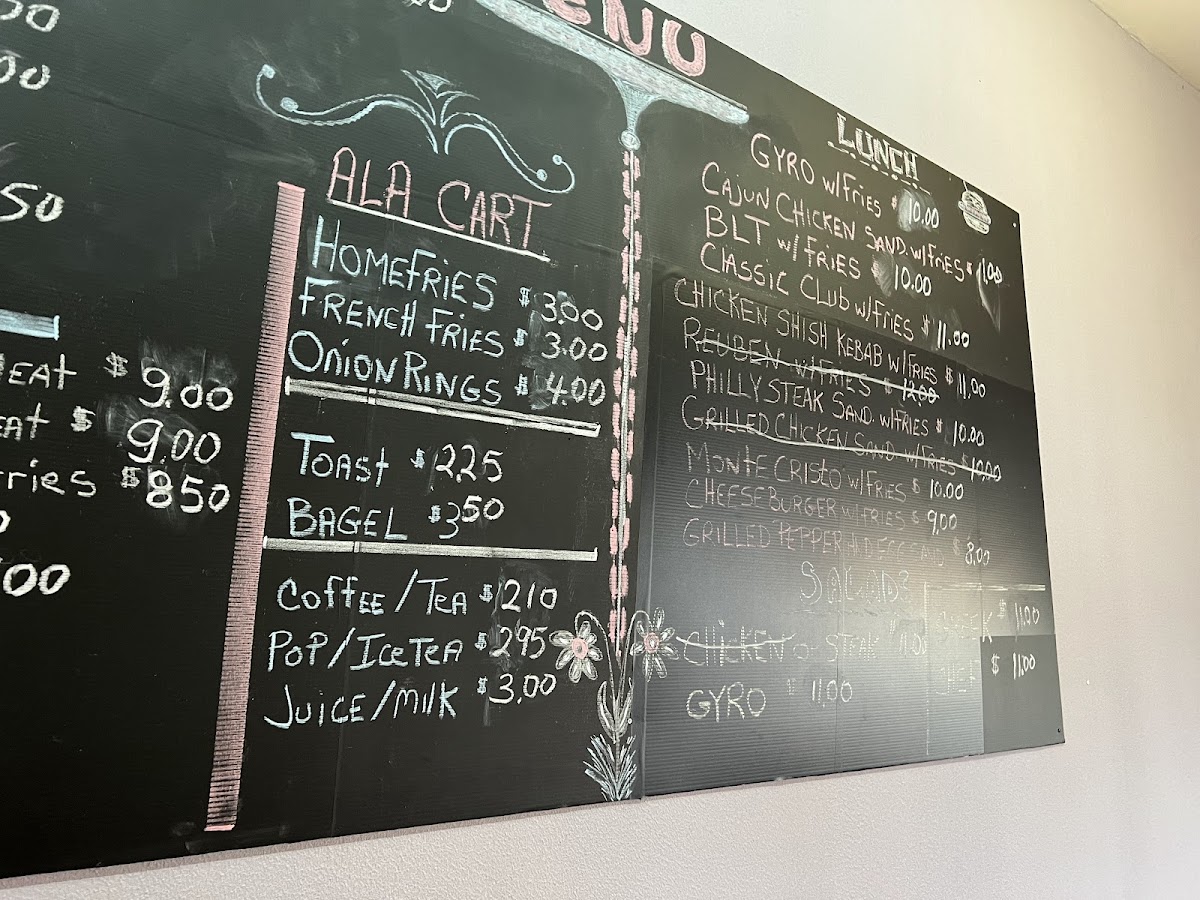 00
50
EAT $ 9.00
EAT $ 9.00
ries $ 8.50
00
MENU
ALA CART
HOMEFRIES $ 3.00
FRENCH FRIES $ 3.00
ONION RINGS $ 4.00
TOAST $ 2.25
BAGEL $ 3.50
COFFEE / TEA $ 2.10
POP / ICE TEA $ 2.95
JUICE / MILK $ 3.00
LUNCH
GYRO w/FRIES $ 10.00
CAJUN CHICKEN SAND. w/FRIES $ 11.00
BLT w/FRIES 10.00
CLASSIC CLUB w/FRIES $ 11.00
CHICKEN SHISH KEBAB w/FRIES $ 11.00
REUBEN w/FRIES $ 12.00
PHILLY STEAK SAND. w/FRIES $ 10.00
GRILLED CHICKEN SAND w/FRIES $ 10.00
MONTE CRISTO w/FRIES $ 10.00
CHEESEBURGER w/FRIES $ 9.00
GRILLED PEPPER $ 8.00
SALADS
CHICKEN or STEAK 11.00
GYRO $ 11.00
GREEK $ 11.00
CHEF $ 11.00